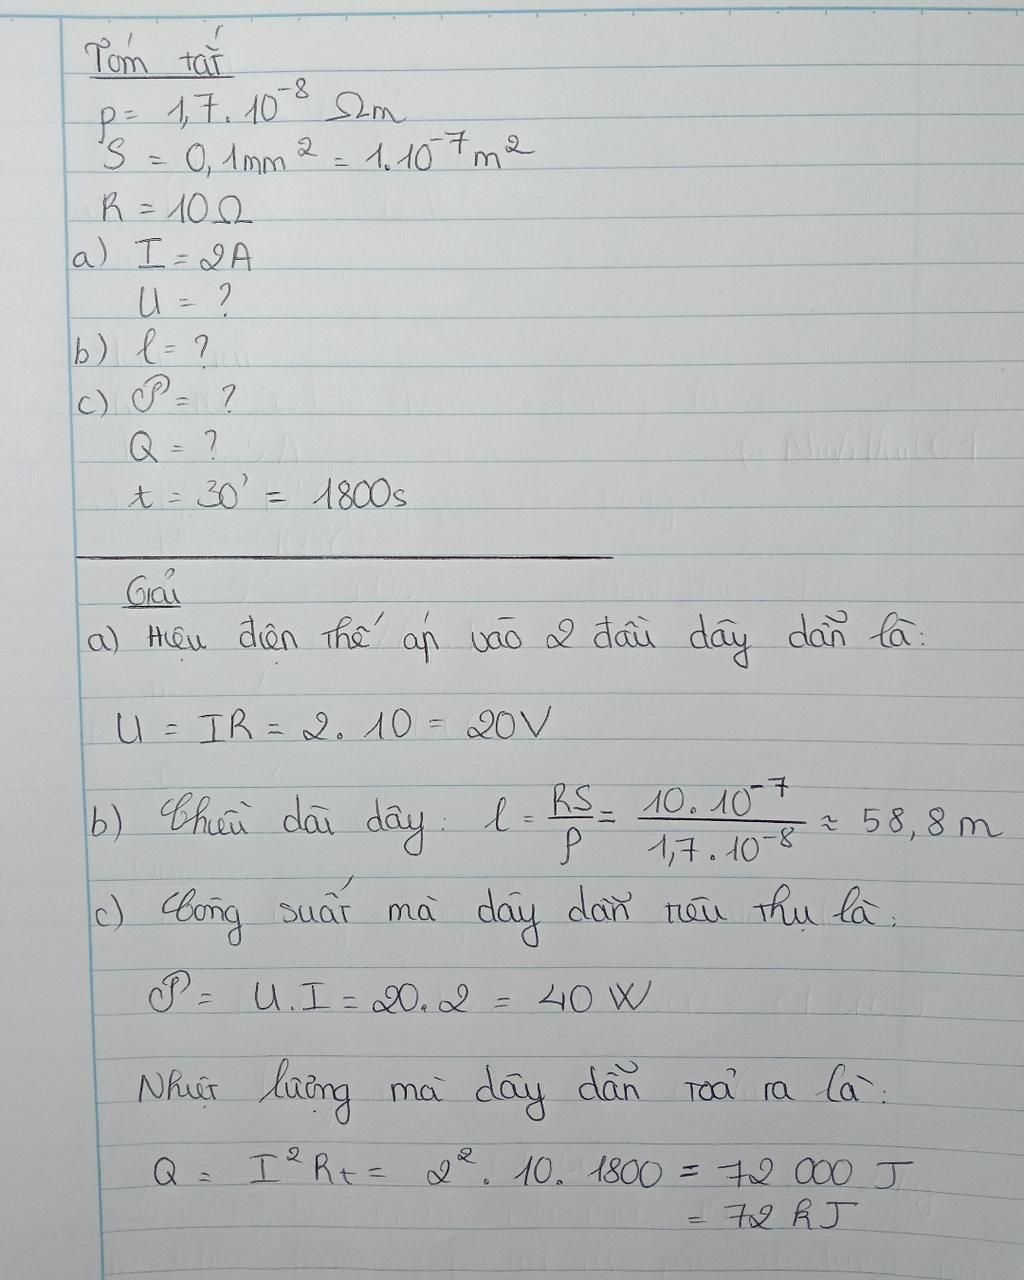 Tóm tắt
ρ = 1,7.10⁻⁸ Ωm
S = 0,1mm² = 1.10⁻⁷m²
R = 10Ω
a) I = 2A
U = ?
b) l = ?
c) 𝒫 = ?
Q = ?
t = 30' = 1800s
Giải
a) Hiệu điện thế áp vào 2 đầu dây dẫn là:
U = IR = 2. 10 = 20V
b) Chiều dài dây: l = RS/ρ = 10.10⁻⁷/1,7.10⁻⁸ ≈ 58,8m
c) Công suất mà dây dẫn tiêu thụ là:
𝒫 = U.I = 20.2 = 40 W
Nhiệt lượng mà dây dẫn toả ra là:
Q = I²Rt = 2². 10. 1800 = 72 000 J
= 72 kJ